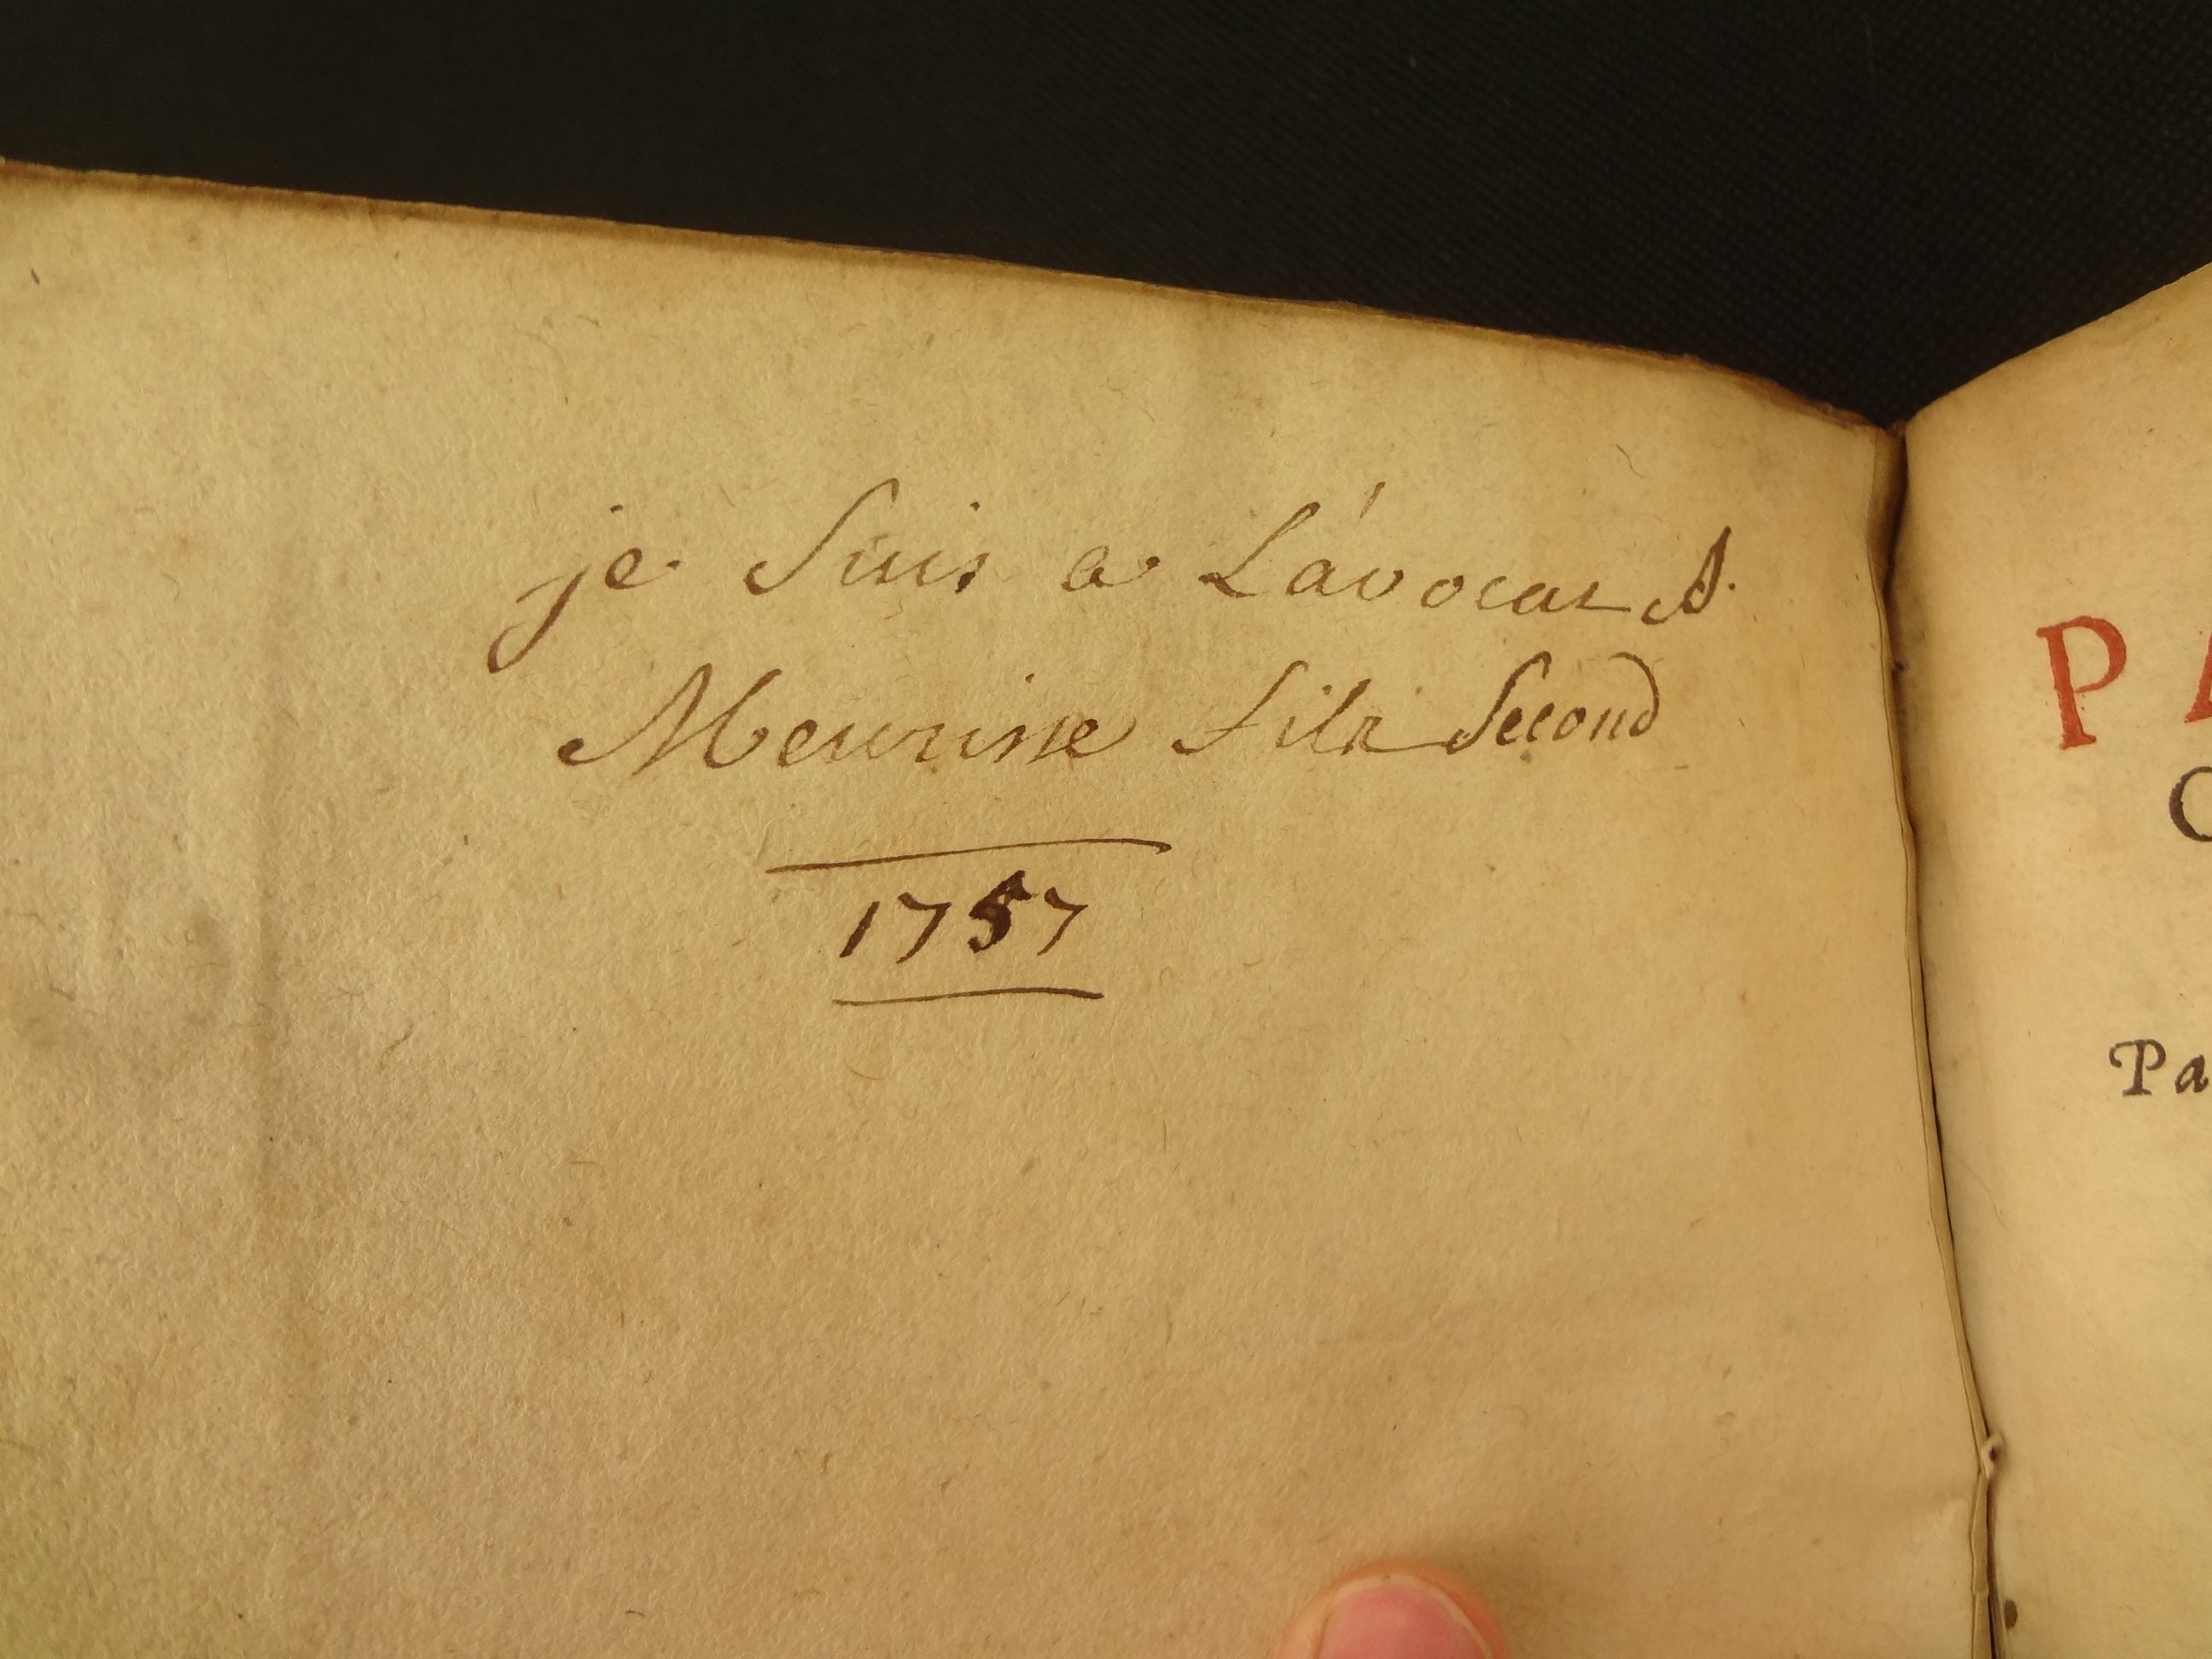 je Suis a L'avocat
Meurisse fils Second
1757
P
Pa